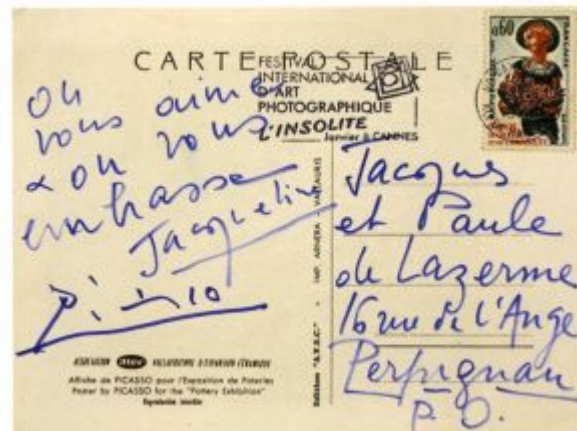 CARTE POSTALE
FESTIVAL
INTERNATIONAL
D'ART
PHOTOGRAPHIQUE
L'INSOLITE
Janvier à CANNES
0,60
on
vous aime
& on vous
embrasse
Jacqueline
Jacques
et Paule
de Lazerme
16 rue de l'Ange
Perpignan
P. O.
IMP. ARNERA - VALLAURIS
Editions "A.V.E.C."
ASSOCIATION VALLAURIENNE D'EXPANSION CÉRAMIQUE
Affiche de PICASSO pour l'Exposition de Poteries
Poster by PICASSO for the "Pottery Exhibition"
Reproduction interdite